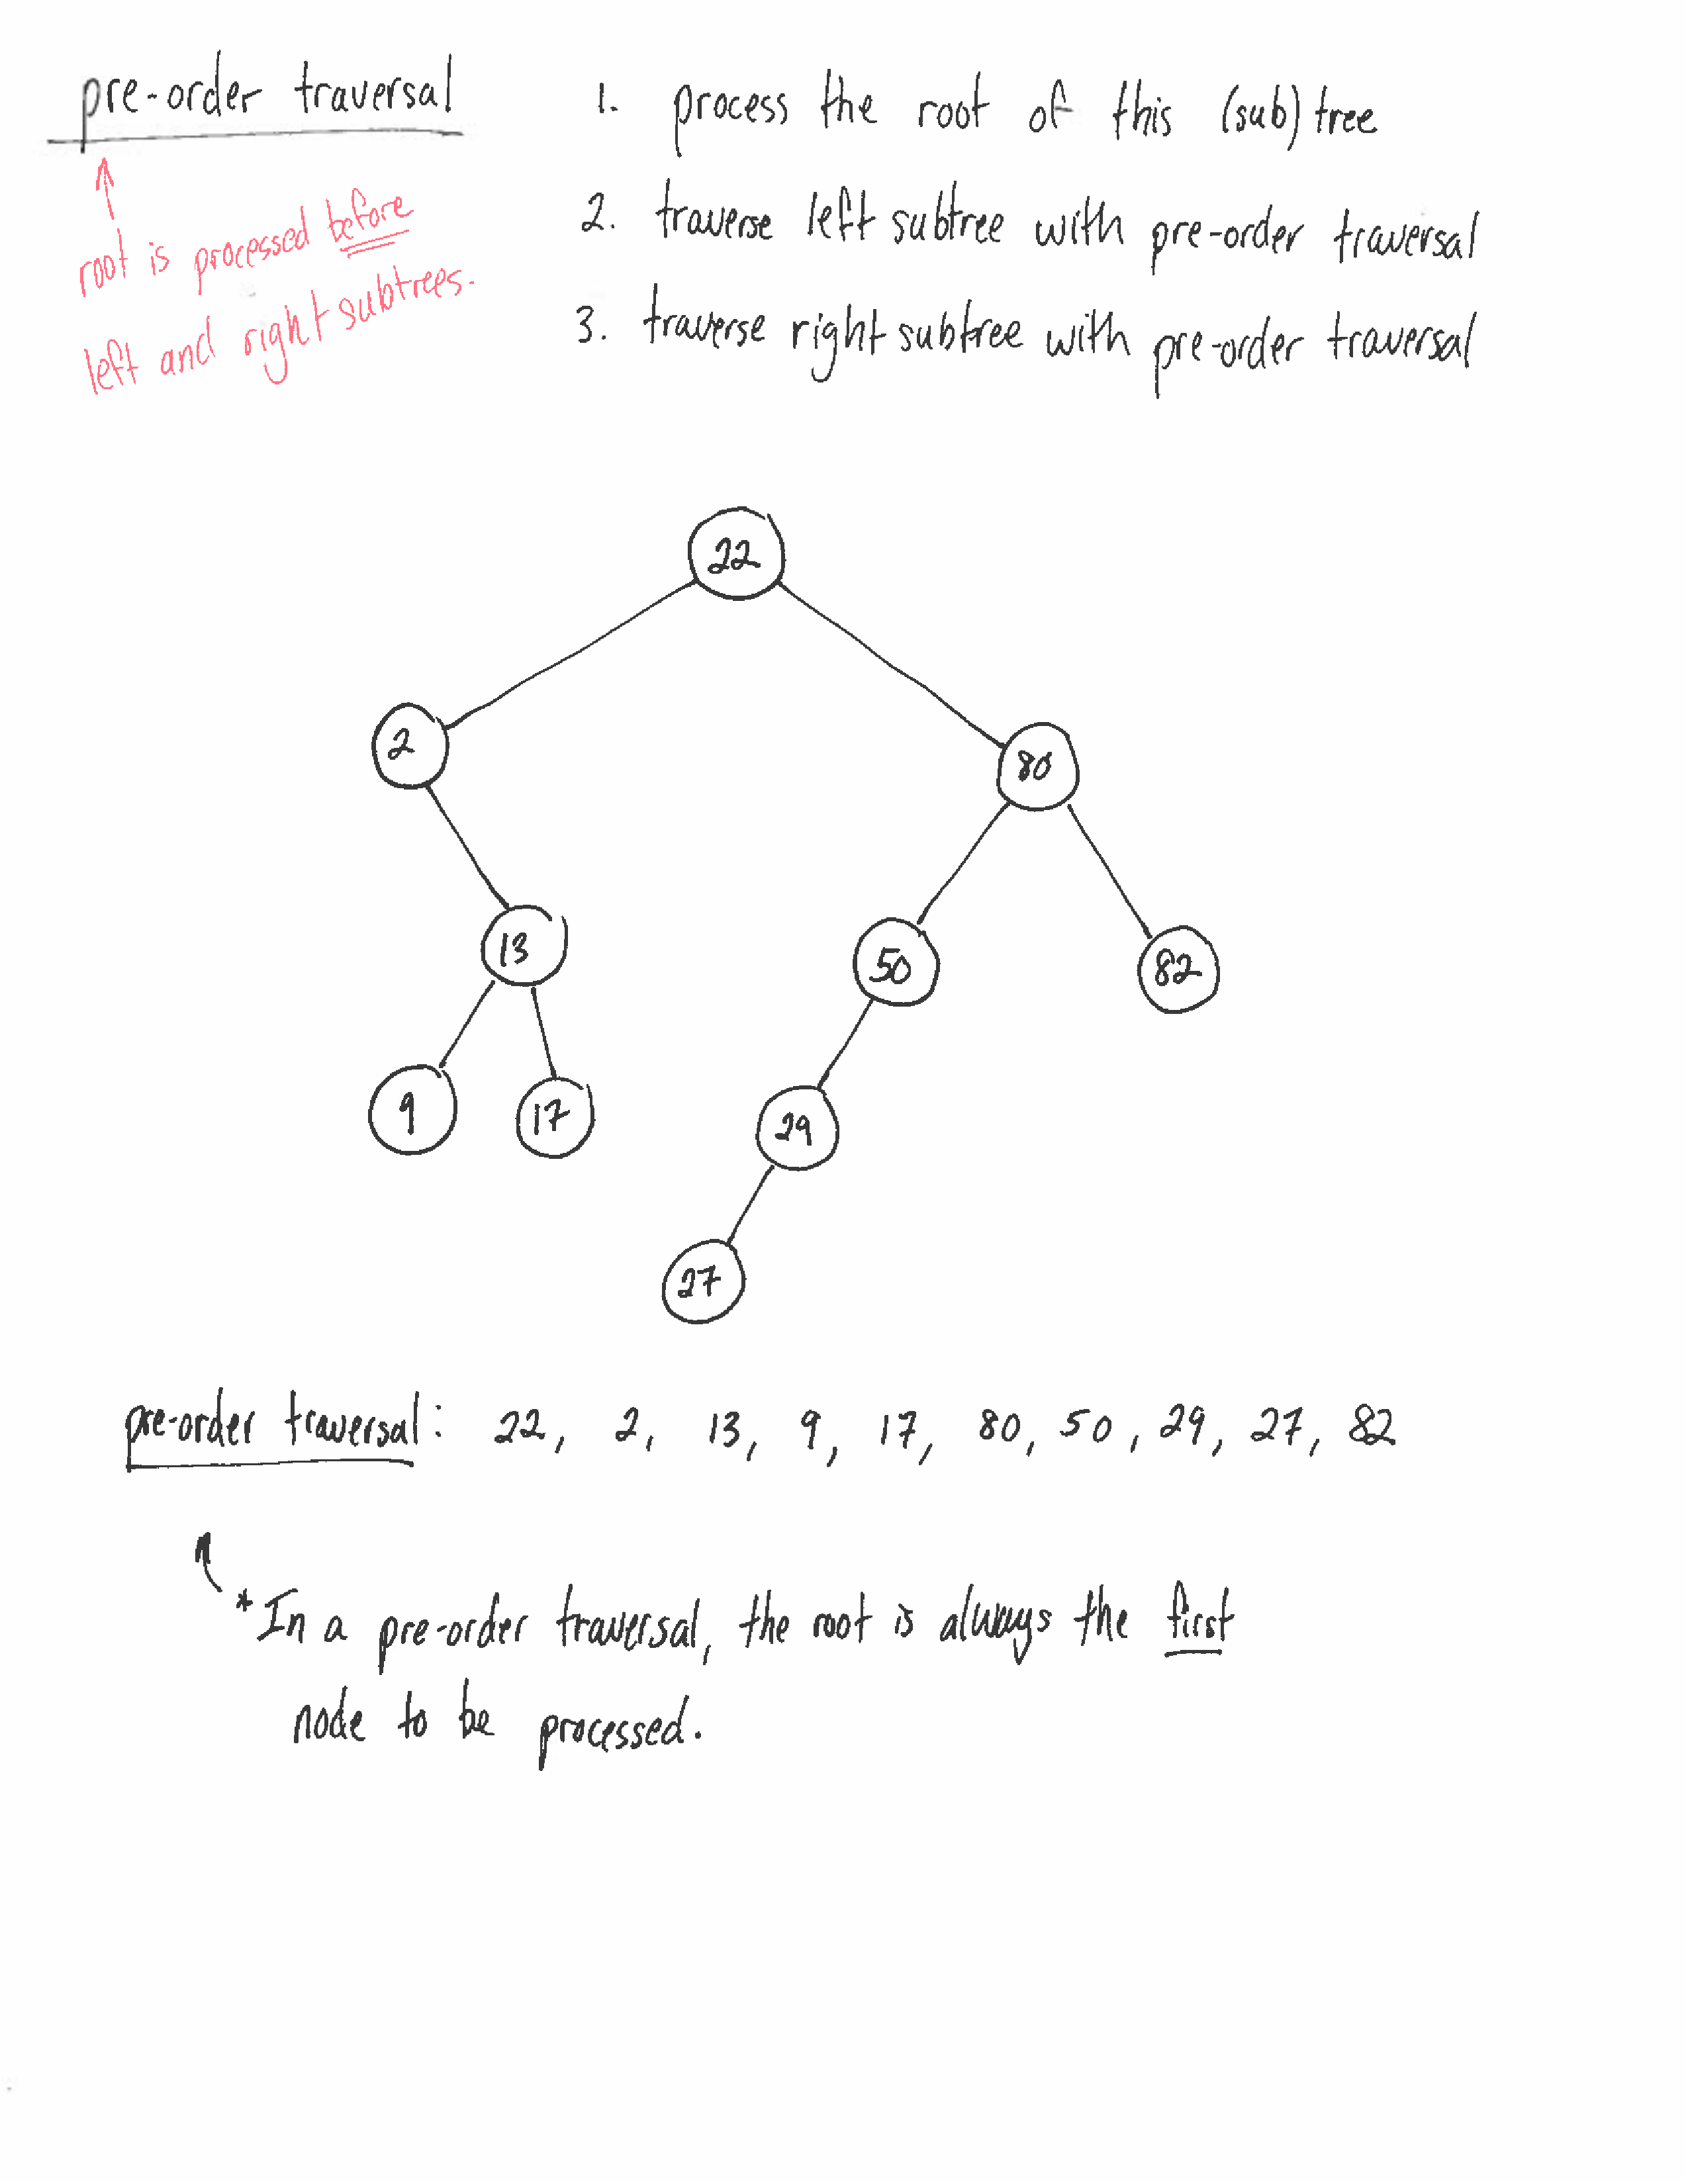 pre-order traversal
root is processed before
left and right subtrees.
1. process the root of this (sub) tree
2. traverse left subtree with pre-order traversal
3. traverse right subtree with pre-order traversal
22
2
80
13
50
82
9
17
29
27
pre-order traversal: 22, 2, 13, 9, 17, 80, 50, 29, 27, 82
*In a pre-order traversal, the root is always the first
node to be processed.